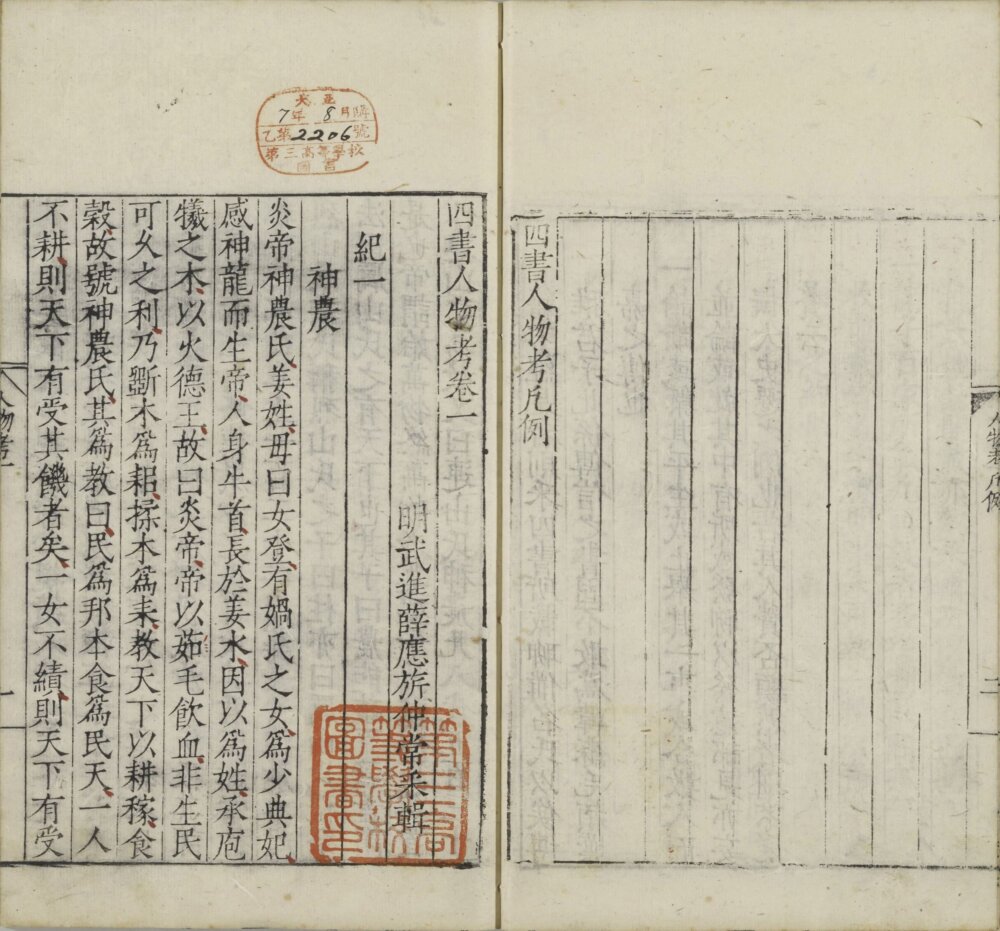 四書人物考凡例
人物考凡例
二
大正
7年8月購
乙第2206號
第三高等學校
圖書
四書人物考卷一
明武進薛應旂仲常采輯
紀一
神農
炎帝神農氏姜姓母曰女登有媧氏之女爲少典妃
感神龍而生帝人身牛首長於姜水因以爲姓承庖
犧之木以火德王故曰炎帝帝以茹毛飲血非生民
可久之利乃斲木爲耜揉木爲耒教天下以耕稼食
穀故號神農氏其爲教曰民爲邦本食爲民天一人
不耕則天下有受其饑者矣一女不績則天下有受
人物考一
一